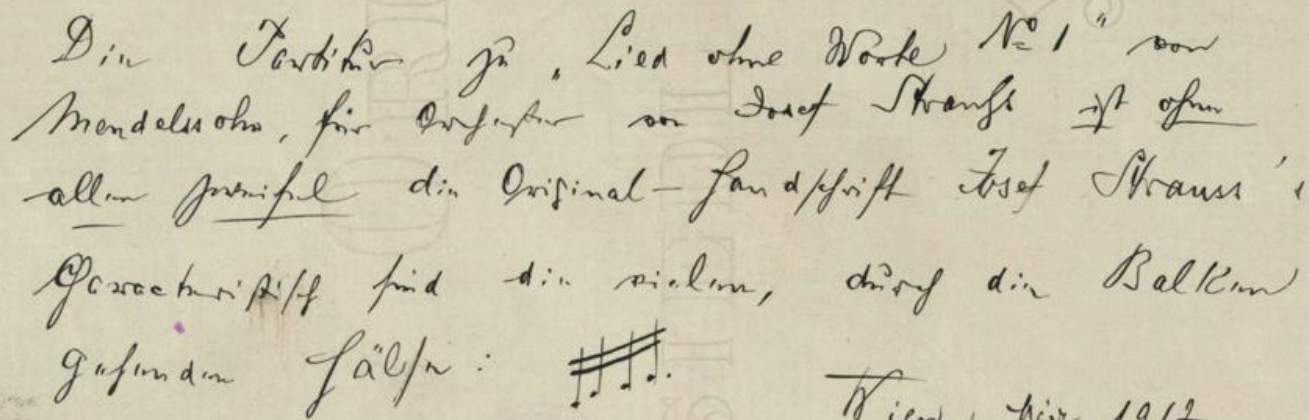 Die Partitur zu „Lied ohne Worte No 1" von
Mendelssohn, für Orchester von Josef Strauss ist ohne
allen Zweifel die Original-Handschrift Josef Strauss'
Characteristisch sind die vielen, durch die Balken
gehenden Hälse:
Wien, 1912